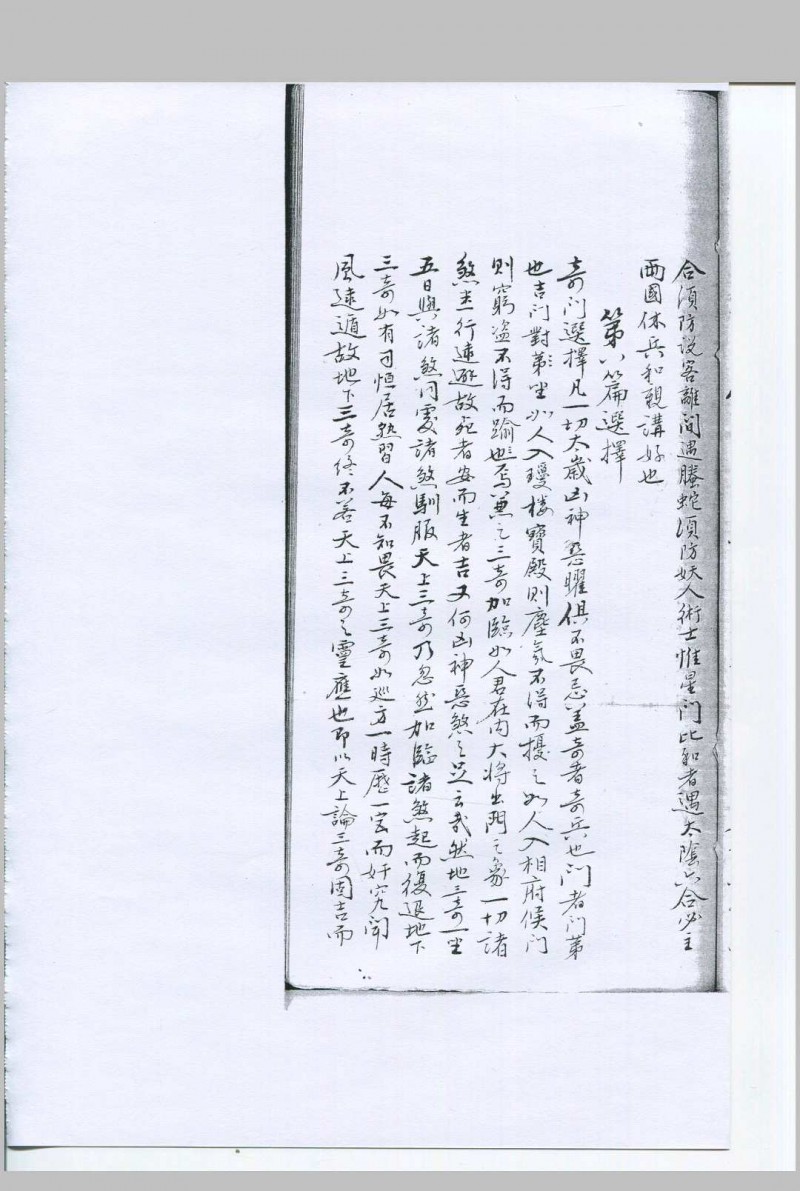 合須防說客離間遇螣蛇須防妖人術士惟星門比和者遇太陰六合必主
兩國休兵和親講好也
第八篇選擇
奇门選擇凡一切太歲凶神惡曜俱不畏忌盖奇者奇兵也门者门第
也吉门對第坐如人入瓊楼寶殿则塵氛不得而擾之如人入相府侯门
则窮盗不得而踰也焉兼之三奇加臨如人君在内大將出門之象一切諸
煞主行速避故死者安而生者吉又何凶神惡煞之足云哉然地三奇一坐
五日與諸煞同處諸煞馴服天上三奇乃忽然加臨諸煞起而復退地下
三奇如有司恒居熟習人每不知畏天上三奇如巡方一時歷一宫而奸宄聞
風速遁故地下三奇终不若天上三奇之靈應也即以天上論三奇固吉而